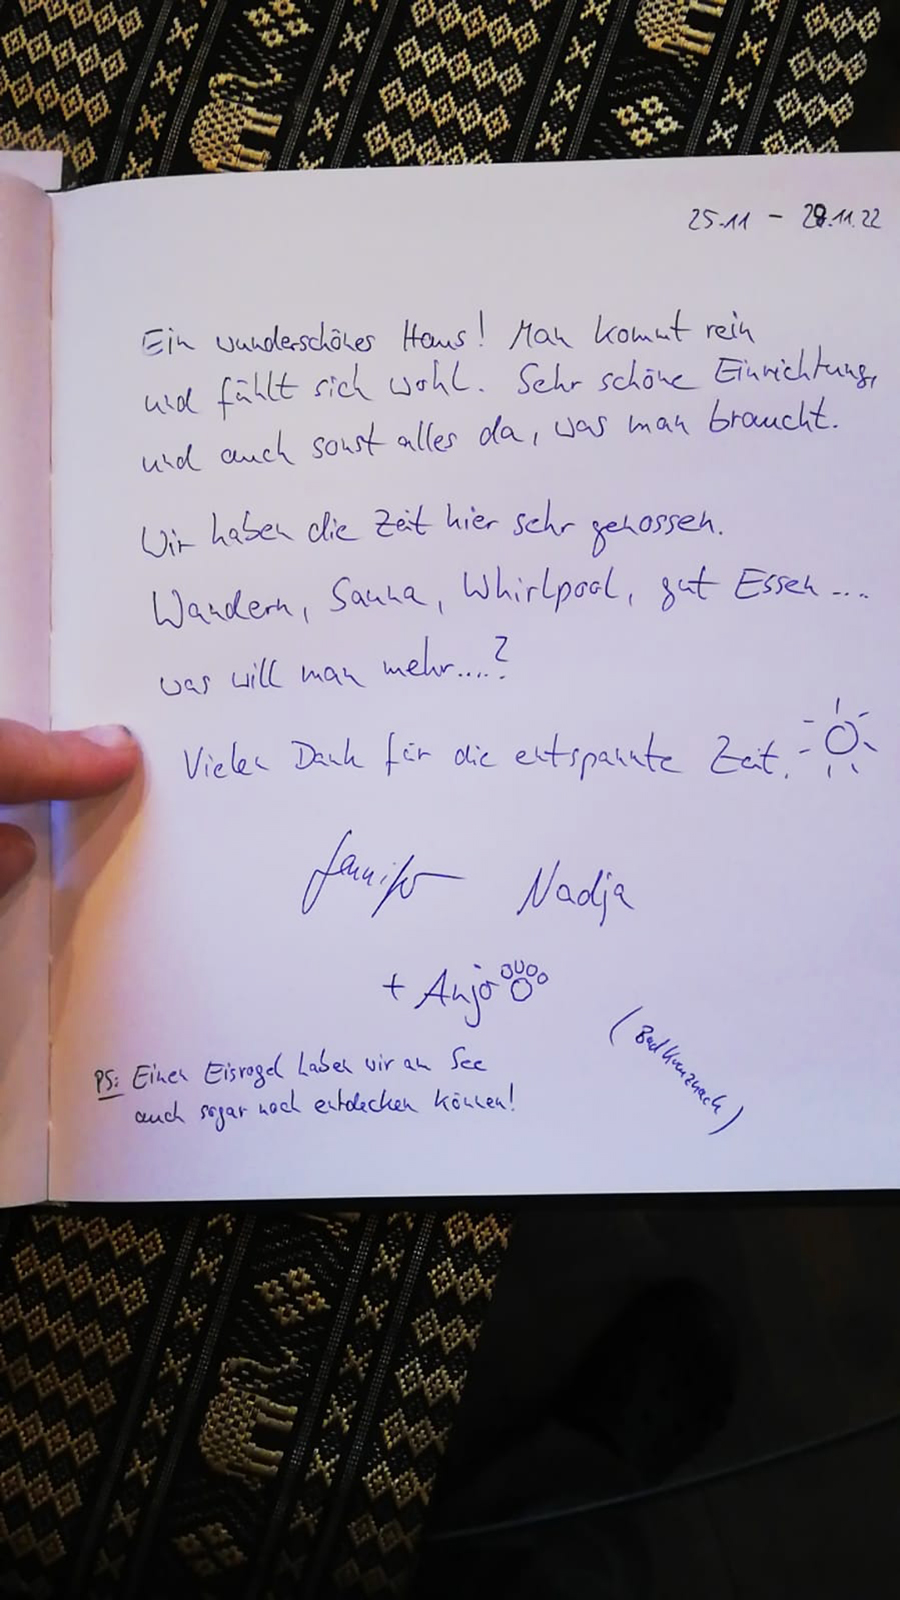 25.11 - 28.11.22
Ein wunderschönes Haus! Man kommt rein
und fühlt sich wohl. Sehr schöne Einrichtung,
und auch sonst alles da, was man braucht.
Wir haben die Zeit hier sehr genossen.
Wandern, Sauna, Whirlpool, gut Essen ...
was will man mehr....?
Vielen Dank für die entspannte Zeit.
Jennifer Nadja
+ Anjo
(Bad Kreuznach)
PS: Einen Eisvogel haben wir am See
auch sogar noch entdecken können!